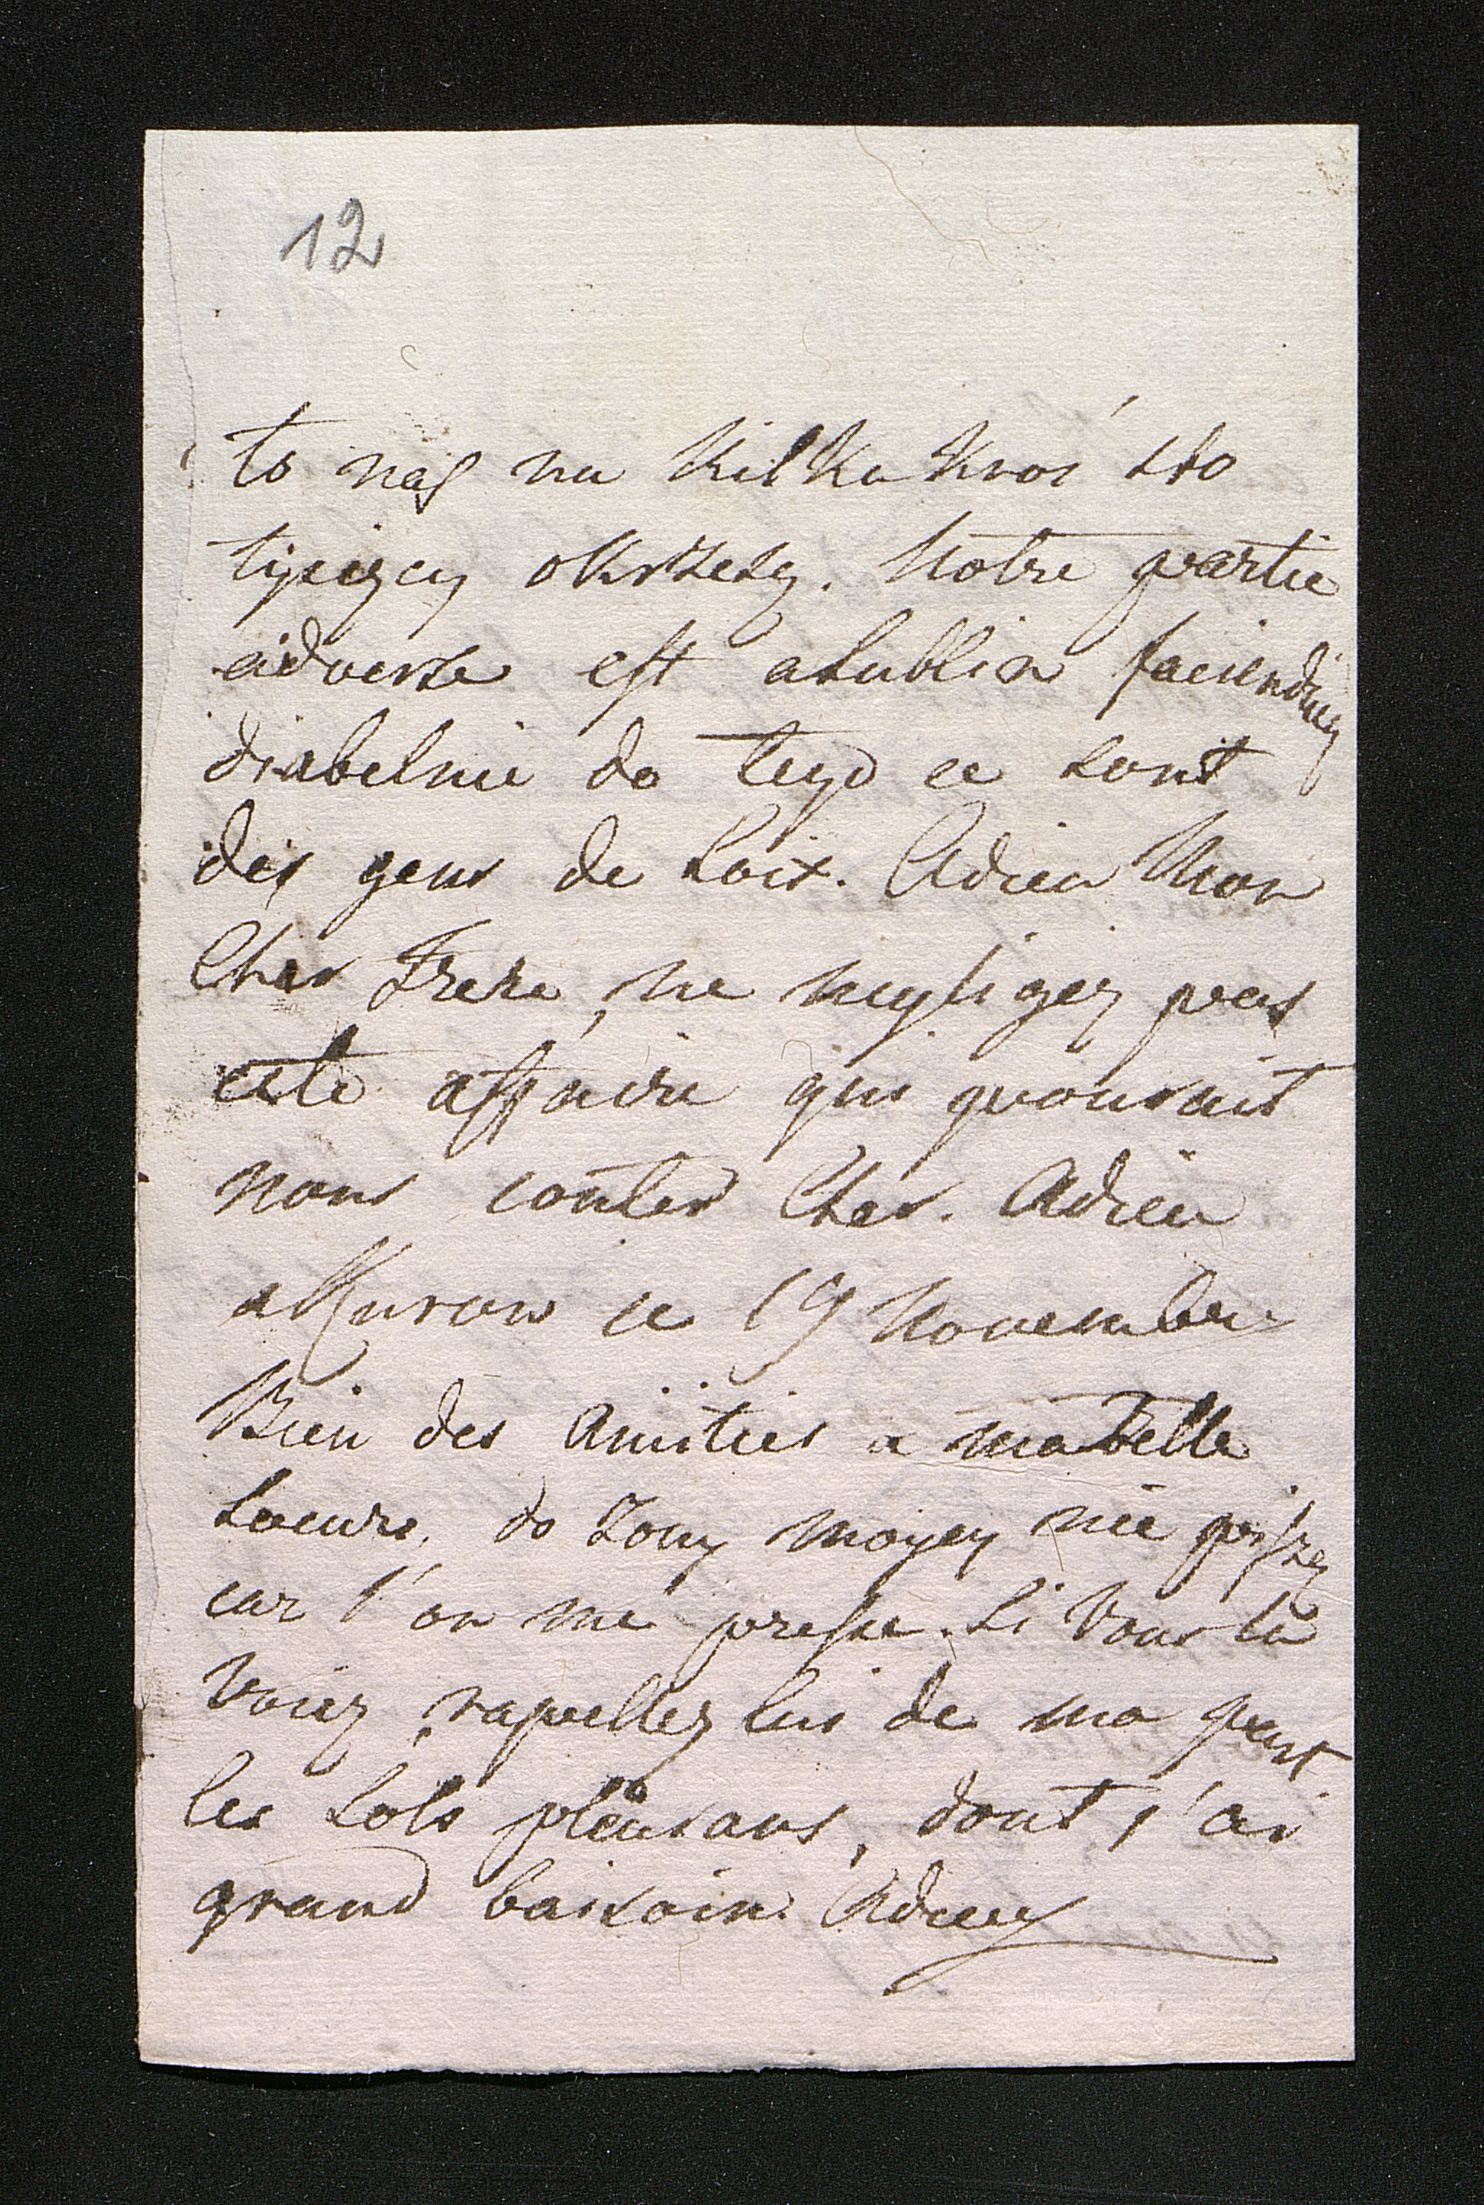 12
to nas na kilkakroć sto
tysięcy okrzesą. Notre partie
adverse est a Lublin faciendują
diabelnie do tego ce sont
des gens de Loix. Adieu Mon
Cher Frere, ne negligez pas
cete affaire qui pourait
nous couter Cher. Adieu
a Kurow ce 19 Novembre
Bien des Amitiés a ma belle
Soeure, do Zony moyey nie piszę
car l'on me presse. Si Vous la
Voiez, rapellez lui de ma part
les Sols plaisans, dont j'ai
grand baisoin. Adieu